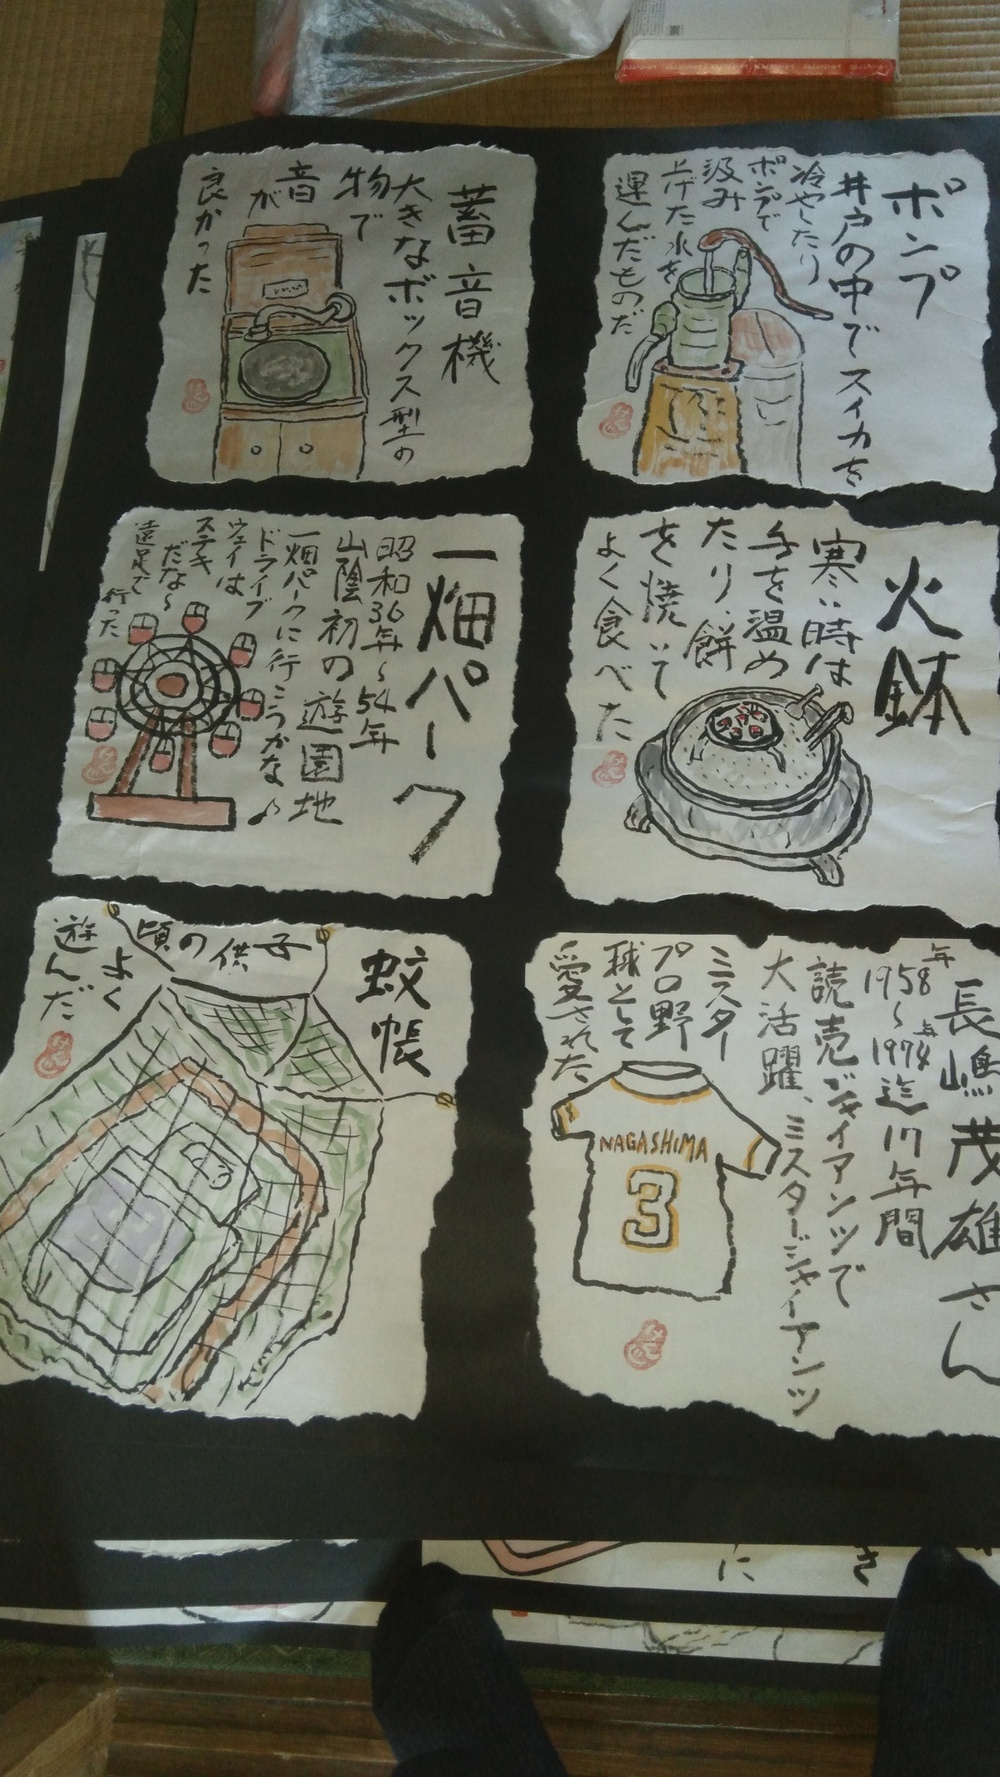 ポンプ
井戸の中でスイカを
冷やしたり
ポンプで
汲み
上げた水を
運んだものだ
蓄音機
大きなボックス型の
物で
音が
良かった
火鉢
寒い時は
手を温め
たり、餅
を焼いて
よく食べた
一畑パーク
昭和36年〜54年
山陰初の遊園地
一畑パークに行こうかな♪
ドライブ
ウェイは
ステキ
だな〜
遠足で
行った
長嶋茂雄さん
1958年〜1974年迄17年間
読売ジャイアンツで
大活躍、ミスタージャイアンツ
ミスター
プロ野
球として
愛された
NAGASHIMA
3
蚊帳
子供の頃
よく
遊んだ